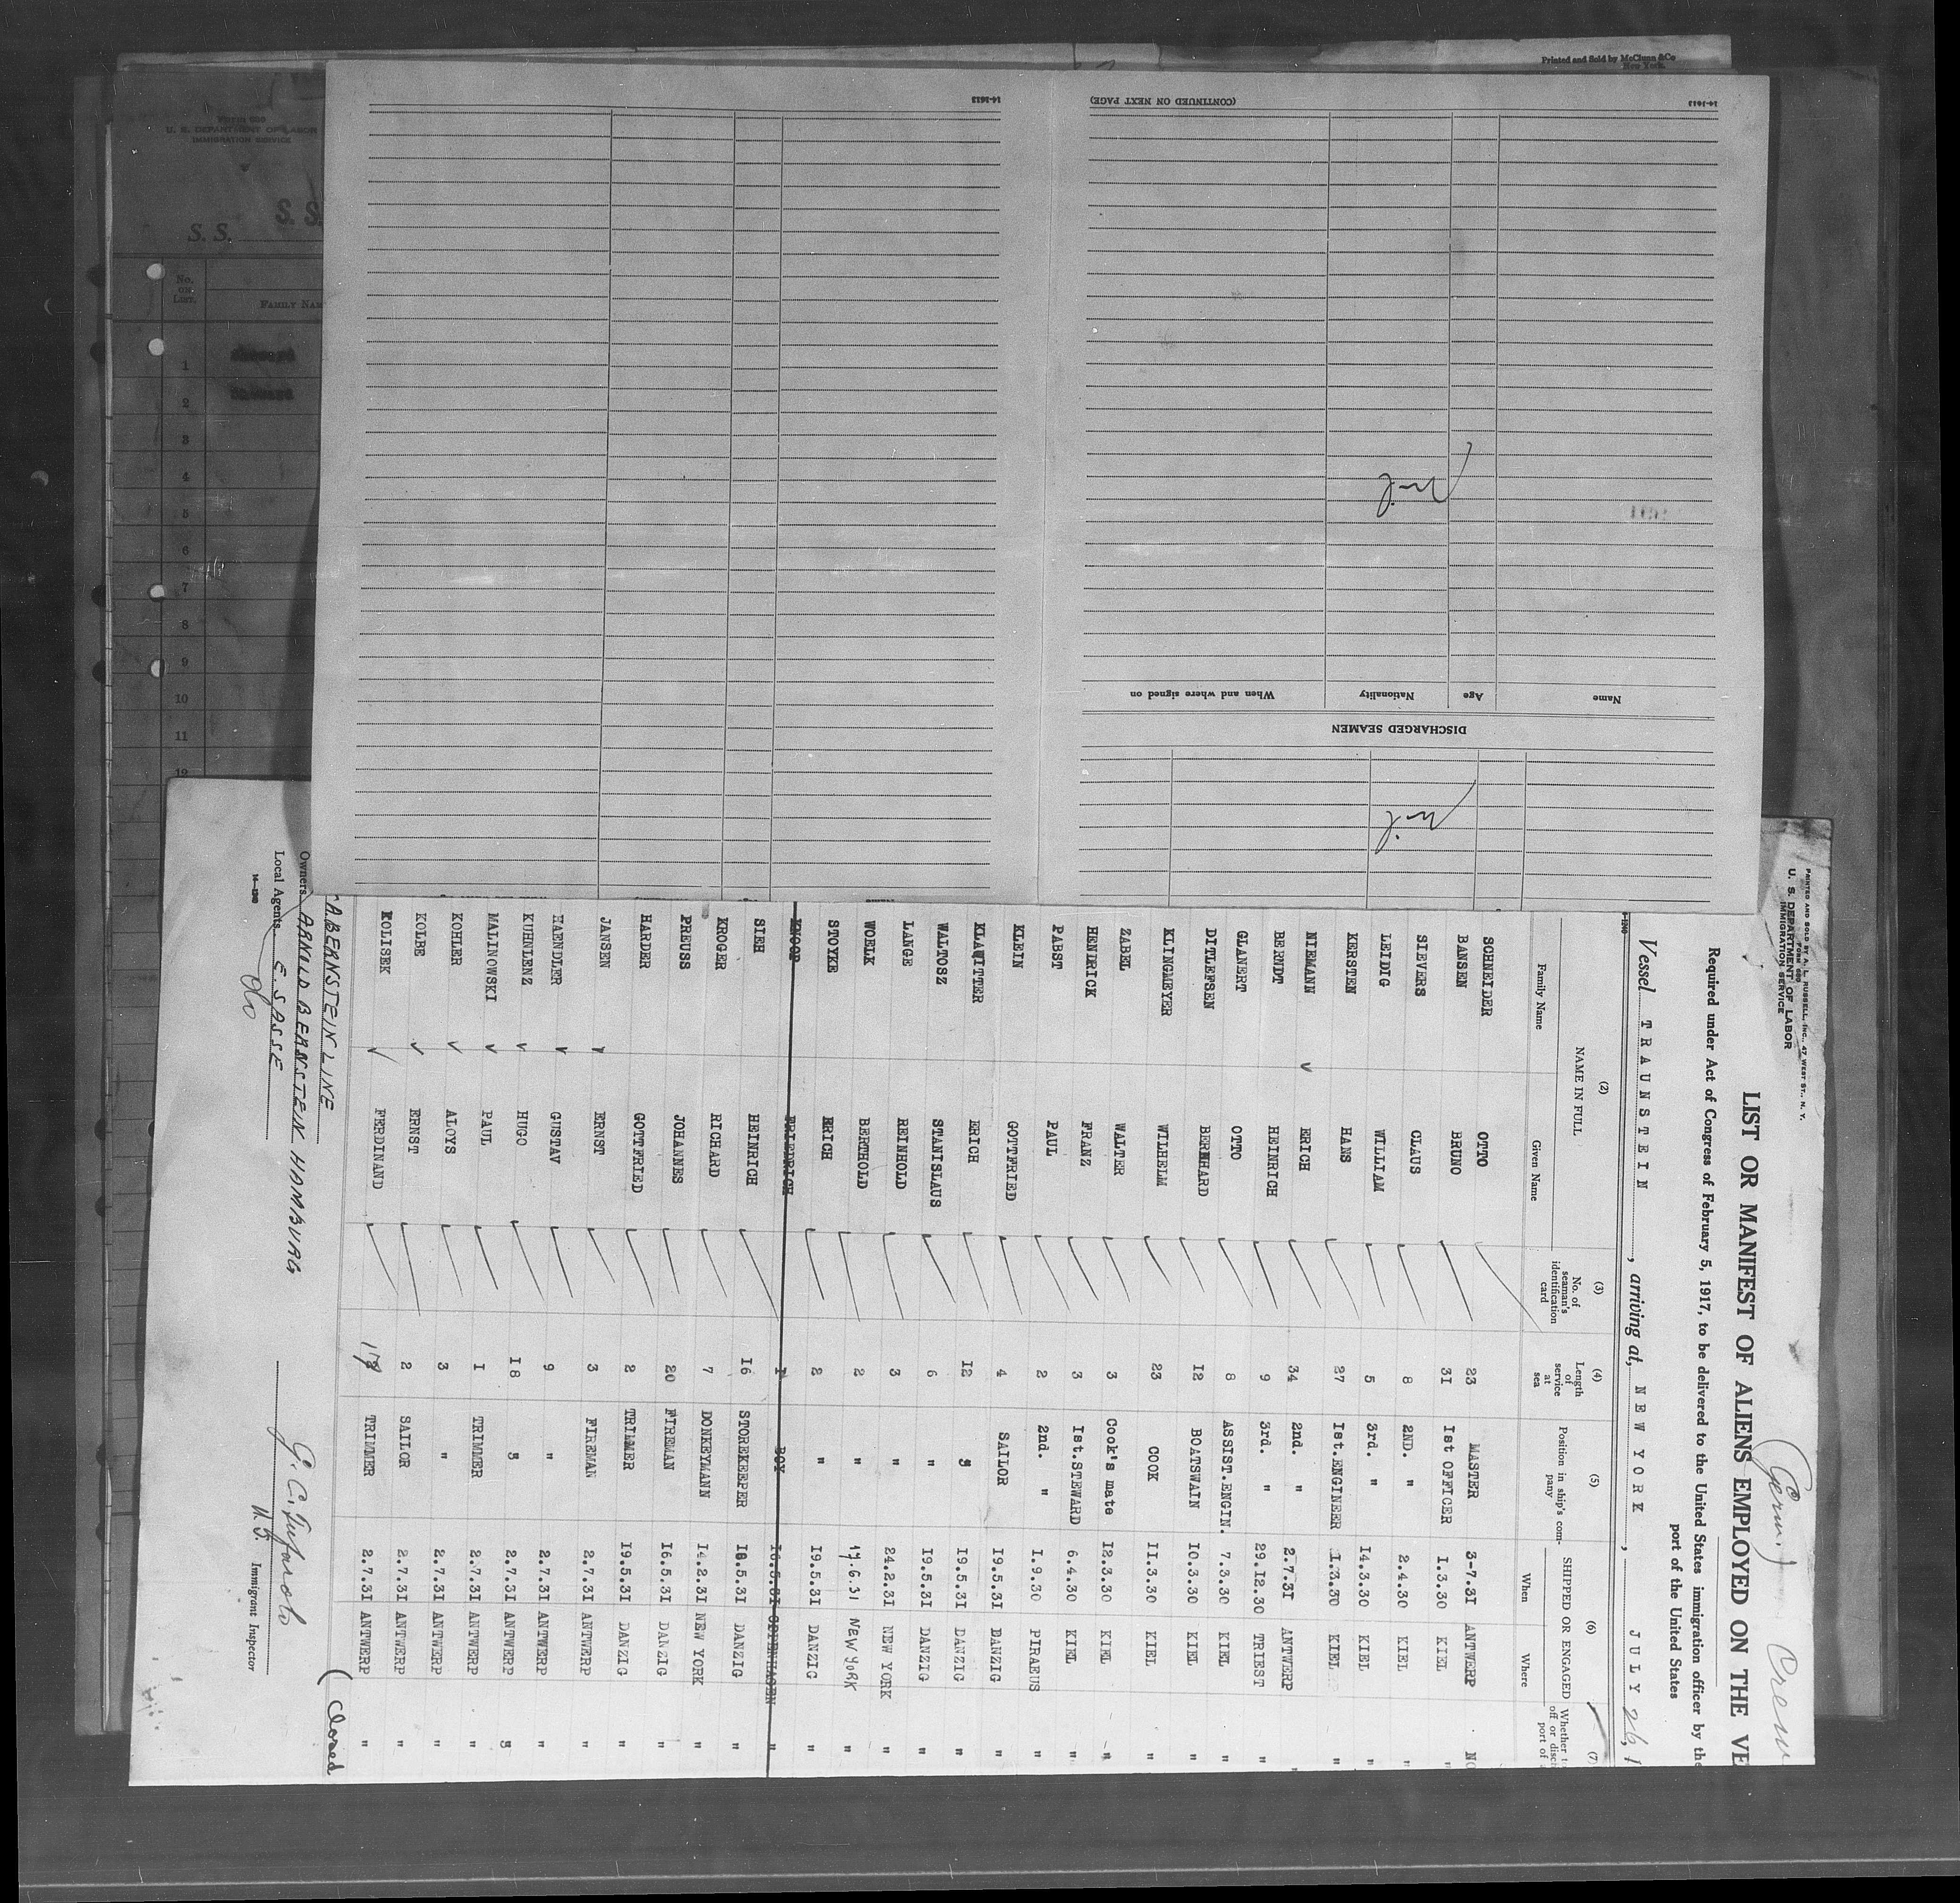 Printed and Sold by McClunn & Co
New York.
U. S. DEPARTMENT OF LABOR
IMMIGRATION SERVICE
S. S.
S. S.
No. ON LIST.
FAMILY NAM
1
2
3
4
5
6
7
8
9
10
11
12
14-1613
(CONTINUED ON NEXT PAGE)
14-1613
nil
When and where signed on
Nationality
Age
Name
DISCHARGED SEAMEN
nil
PRINTED AND SOLD BY A. L. RUSSELL, INC., 47 WEST ST., N. Y.
FORM 689
U. S. DEPARTMENT OF LABOR
IMMIGRATION SERVICE
(Germ.) Crew
LIST OR MANIFEST OF ALIENS EMPLOYED ON THE VE
Required under Act of Congress of February 5, 1917, to be delivered to the United States immigration officer by the
port of the United States
Vessel TRAUNSTEIN, arriving at, NEW YORK, JULY 26, 1
(2) (3) (4) (5) (6) (7)
NAME IN FULL
Family Name Given Name
No. of seaman's identification card
Length of service at sea
Position in ship's company
SHIPPED OR ENGAGED
When Where
SCHNEIDER OTTO 23 MASTER 3-7.3I ANTWERP NO
BANSEN BRUNO 3I Ist OFFICER I.3.30 KIEL "
SIEVERS CLAUS 8 2ND. " 2.4.30 KIEL "
LEIDIG WILLIAM 5 3rd. " I4.3.30 KIEL "
KERSTEN HANS 27 Ist.ENGINEER I.3.30 KIEL "
NIEMANN ERICH 34 2nd. " 2.7.3I ANTWERP "
BERNDT HEINRICH 9 3rd. " 29.I2.30 TRIEST "
GLANERT OTTO 8 ASSIST.ENGIN. 7.3.30 KIEL "
DITLEFSEN BERNHARD I2 BOATSWAIN I0.3.30 KIEL "
KLINGMEYER WILHELM 23 COOK II.3.30 KIEL "
ZABEL WALTER 3 Cook's mate I2.3.30 KIEL "
HENDRICK FRANZ 3 Ist.STEWARD 6.4.30 KIEL "
PABST PAUL 2 2nd. " I.9.30 PIRAEUS "
KLEIN GOTTFRIED 4 SAILOR I9.5.3I DANZIG "
KLAWITTER ERICH I2 " I9.5.3I DANZIG "
WALTOSZ STANISLAUS 6 " I9.5.3I DANZIG "
LANGE REINHOLD 3 " 24.2.3I NEW YORK "
WOELK BERTHOLD 2 " 17.6.31 NEW YORK "
STOYKE ERICH 2 " I9.5.3I DANZIG "
KNOOP FRIEDRICH I BOY I6.5.3I COPENHAGEN "
SIEH HEINRICH I6 STOREKEEPER I8.5.3I DANZIG "
KROGER RICHARD 7 DONKEYMANN I4.2.3I NEW YORK "
PREUSS JOHANNES 20 FIREMAN I6.5.3I DANZIG "
HARDER GOTTFRIED 2 TRIMMER I9.5.3I DANZIG "
JANSEN ERNST 3 FIREMAN 2.7.3I ANTWERP "
HAENDLER GUSTAV 9 " 2.7.3I ANTWERP "
KUHNLENZ HUGO I8 " 2.7.3I ANTWERP "
MALINOWSKI PAUL I TRIMMER 2.7.3I ANTWERP "
KOHLER ALOYS 3 " 2.7.3I ANTWERP "
KOLBE ERNST 2 SAILOR 2.7.3I ANTWERP "
KOLISEK FERDINAND TRIMMER 2.7.3I ANTWERP "
(Closed
A. BERNSTEIN LINE
Owners ARNOLD BERNSTEIN HAMBURG
Local Agents E. SASSE
do
U. S. Immigrant Inspector